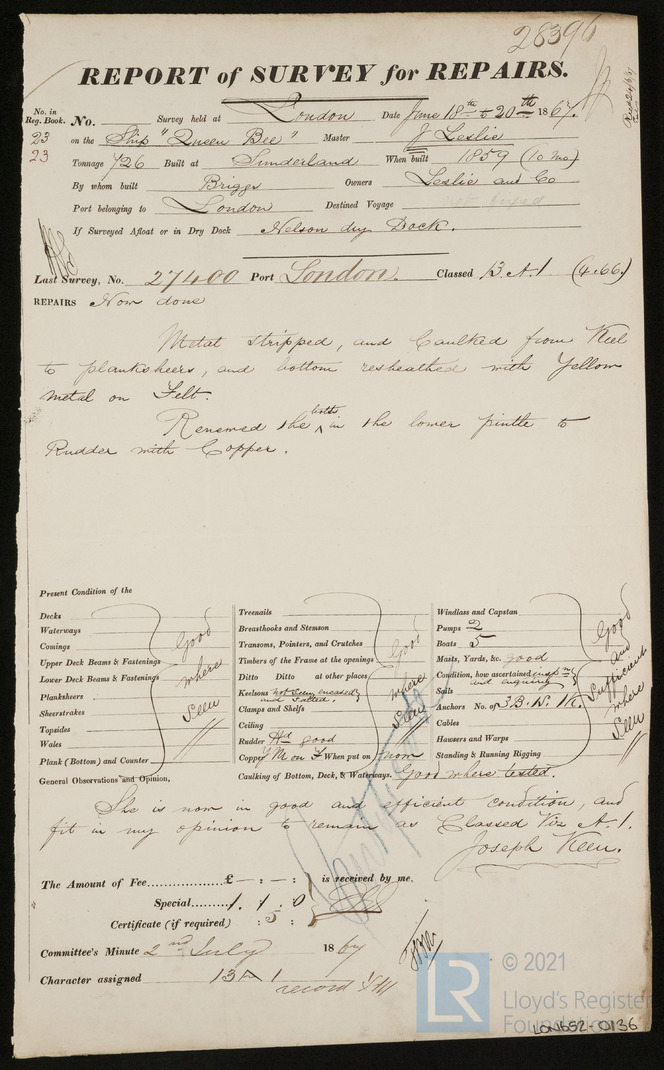 28396
REPORT of SURVEY for REPAIRS.
No. in Reg. Book. No. Survey held at London Date June 18th to 20th 1867.
23 on the Ship "Queen Bee" Master J Leslie
23 Tonnage 726 Built at Sunderland When built 1859 (10 mo)
By whom built Briggs Owners Leslie and Co
Port belonging to London Destined Voyage not fixed
If Surveyed Afloat or in Dry Dock Nelson dry Dock.
Last Survey, No. 27400 Port London. Classed 13 A.1 (4.66)
REPAIRS Now done
Metal stripped, and Caulked from Keel
to planksheers, and bottom resheathed with Yellow
metal on Felt.
Renewed the bolts in the lower pintle to
Rudder with Copper.
Present Condition of the
Decks
Waterways
Comings
Upper Deck Beams & Fastenings
Lower Deck Beams & Fastenings
Planksheers
Sheerstrakes
Topsides
Wales
Plank (Bottom) and Counter
Good
where
Seen
Treenails
Breasthooks and Stemson
Transoms, Pointers, and Crutches
Timbers of the Frame at the openings
Ditto Ditto at other places
Keelsons not seen, encased and Salted.
Clamps and Shelfs
Ceiling
Rudder Hd good
Copper YM on F When put on now
Good
where
Seen
Caulking of Bottom, Deck, & Waterways. Good where tested.
Windlass and Capstan
Pumps 2
Boats 5
Masts, Yards, &c. good
Condition, how ascertained insp.n and enquiry
Sails
Anchors No. of 3 B. 1 S. 1 K.
Cables
Hawsers and Warps
Standing & Running Rigging
Good
and
Sufficient
where
Seen
General Observations and Opinion,
She is now in good and efficient condition, and
fit in my opinion to remain as Classed Viz A.1.
Joseph Keen.
The Amount of Fee £ — : — : is received by me,
Special 1. 1. 0
Certificate (if required) : 5 :
Committee's Minute 2nd July 1867
Character assigned 13 A 1
record YM
© 2021
LR
Lloyd's Register
Foundation
LON652-0136